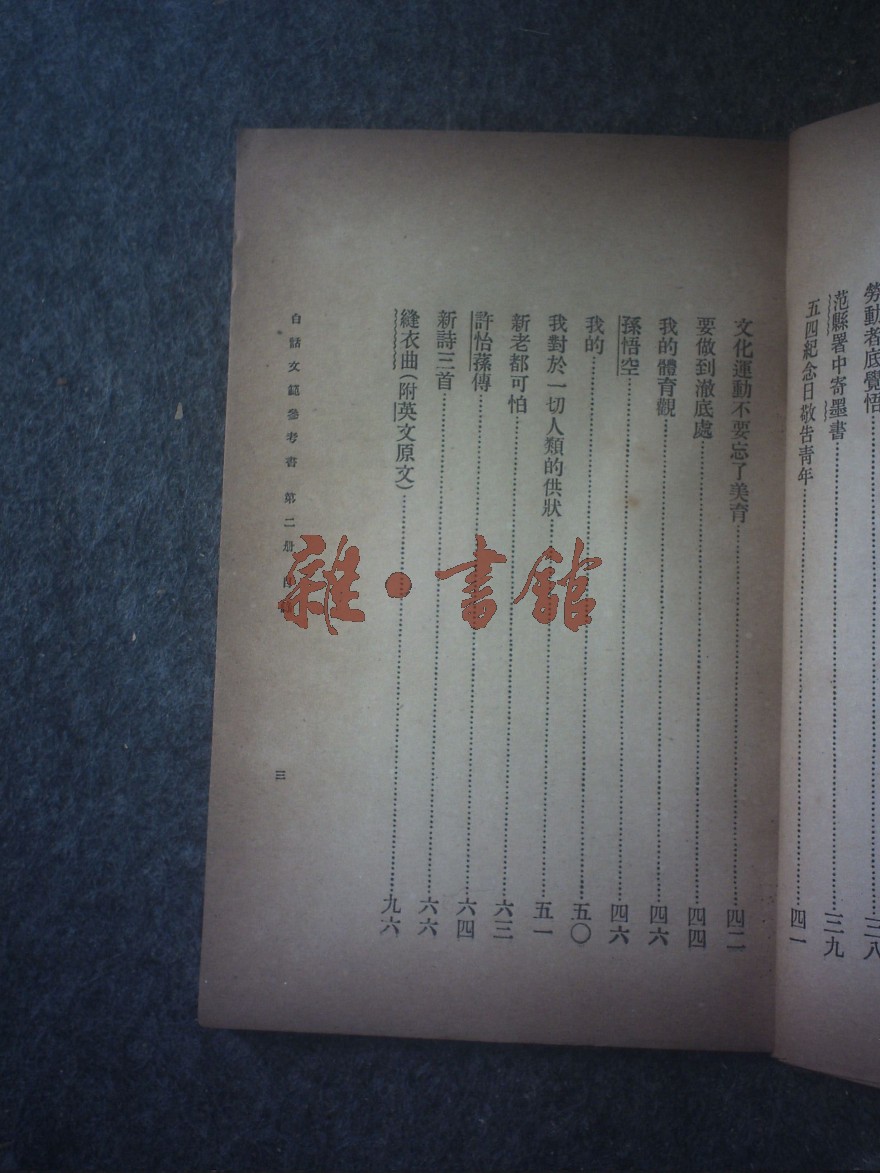 勞動者底覺悟……三八
范縣署中寄墨書……三九
五四紀念日敬告靑年……四一
文化運動不要忘了美育……四二
要做到澈底處……四四
我的體育觀……四六
孫悟空……四六
我的……五〇
我對於一切人類的供狀……五一
新老都可怕……六三
許怡蓀傳……六四
新詩三首……六六
縫衣曲(附英文原文)……九六
白話文範參考書 第二册 目
三
雜·書館